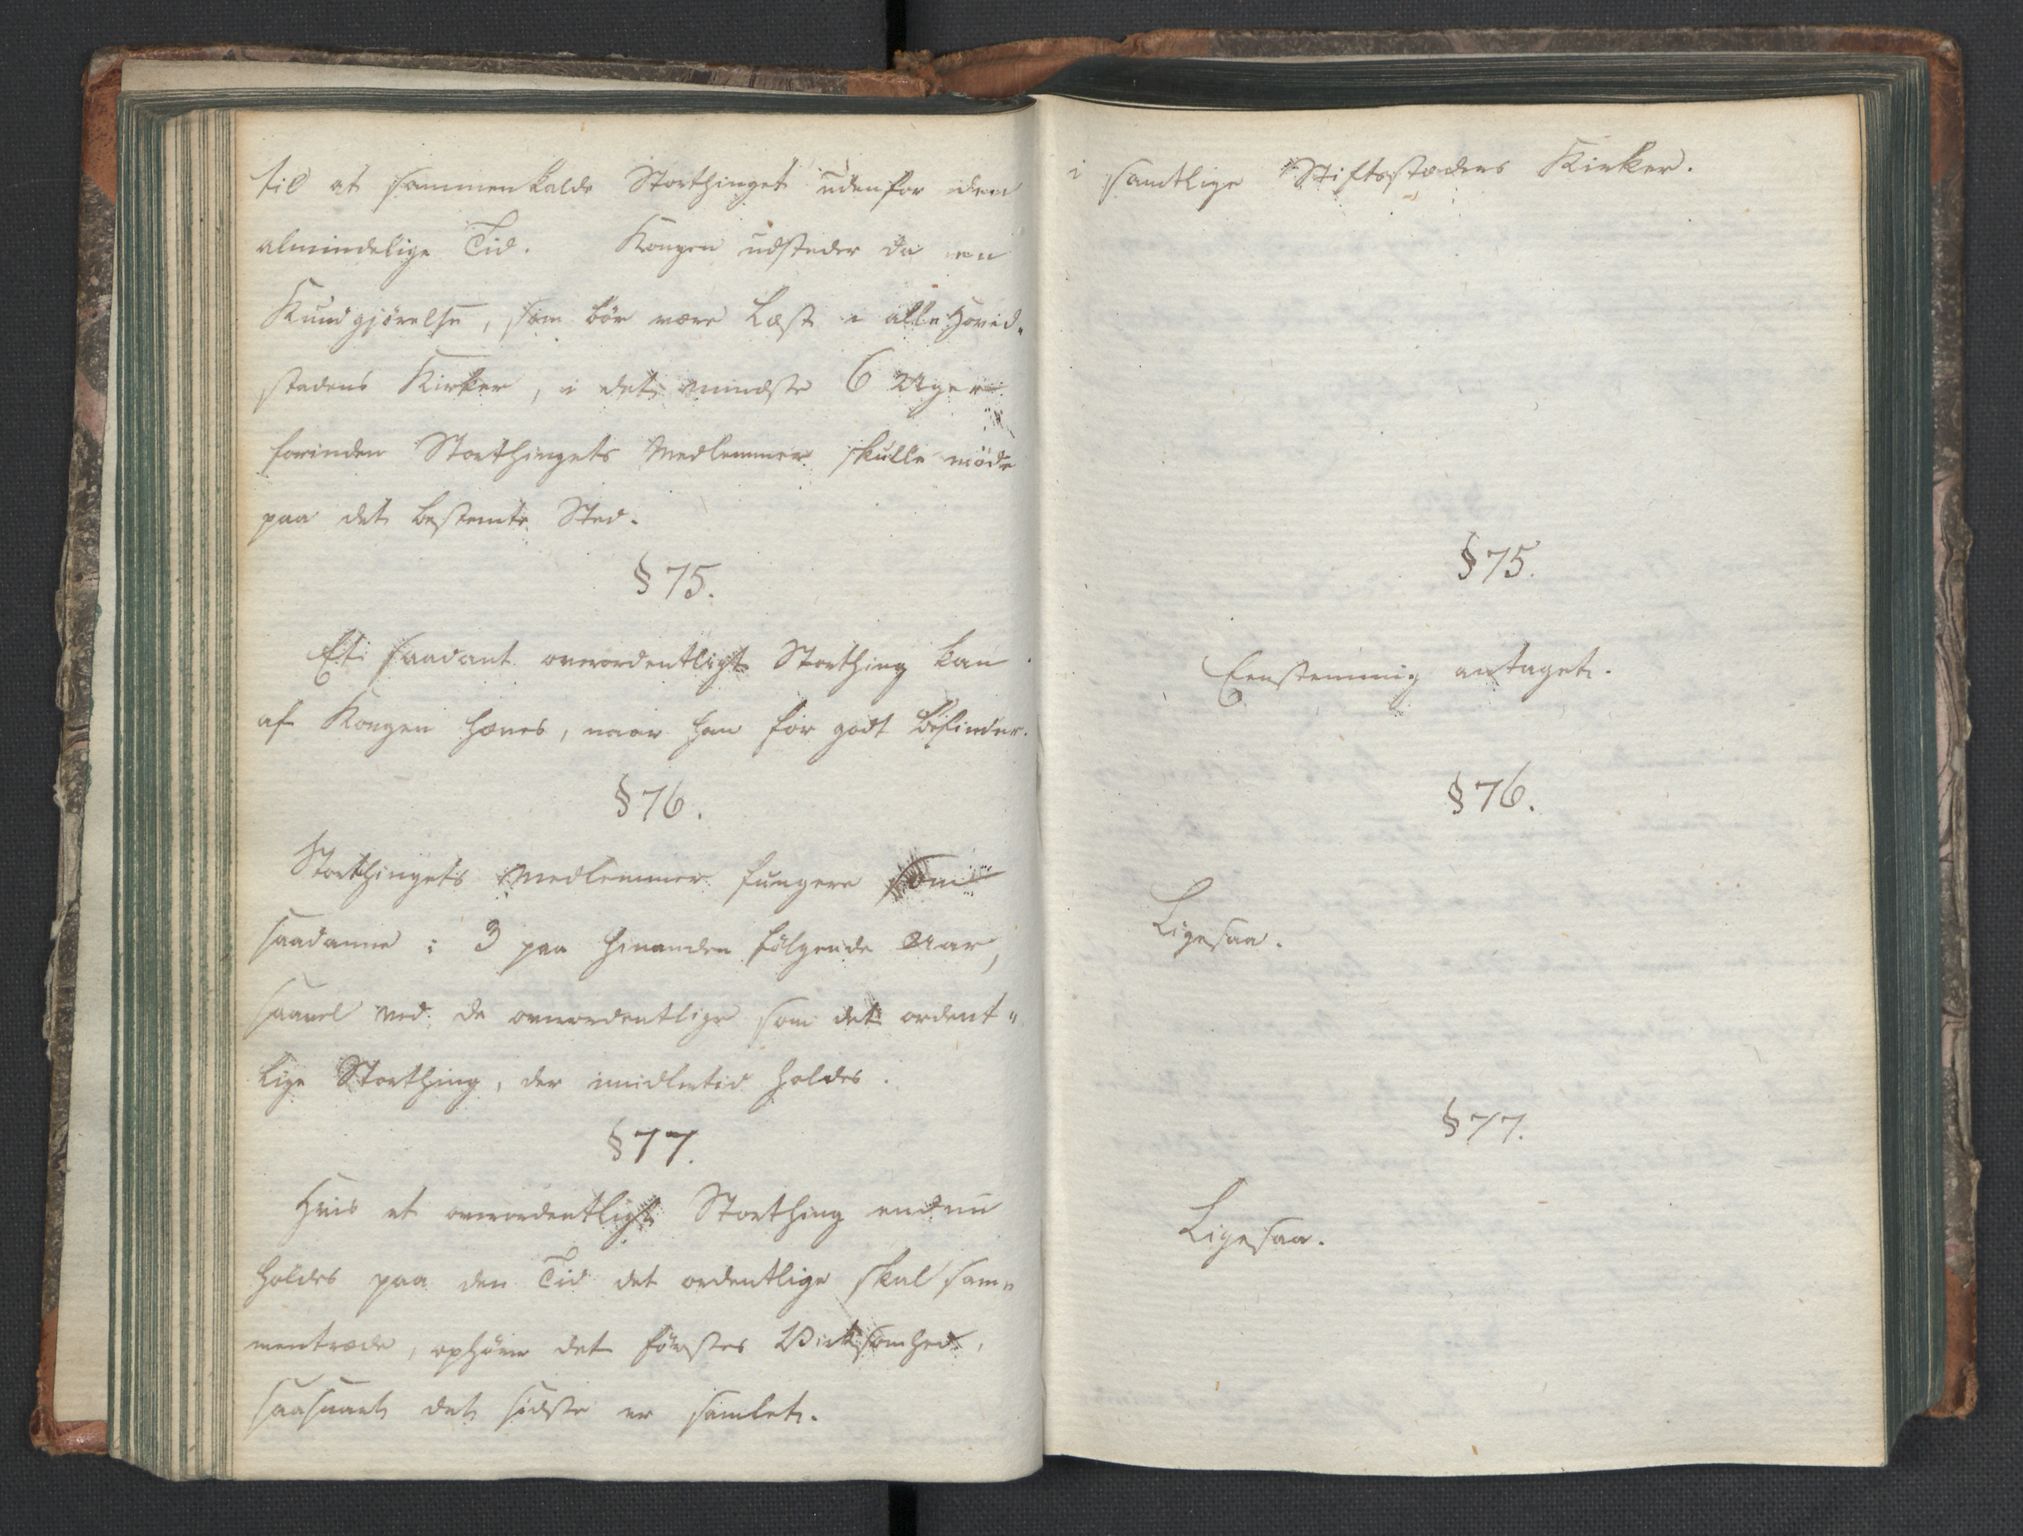 til at sammenkalde Storthinget udenfor den
almindelige Tid. Kongen udsteder da en
Kundgjørelse, som bør være læst i alle Hoved-
stadens Kirker, i det mindste 6 Uger
forinden Storthingets Medlemmer skulle møde
paa det bestemte Sted.
§ 75.
Et saadant overordentligt Storthing kan
af Kongen hæves, naar han for godt befinder.
§ 76.
Storthingets Medlemmer fungere som
saadanne i 3 paa hinanden følgende Aar,
saavel ved de overordentlige som det ordent-
lige Storthing, der imidlertid holdes.
§ 77.
Hvis et overordentligt Storthing endnu
holdes paa den Tid det ordentlige skal sam-
mentræde, ophører det førstes Virksomhed,
saasnart det sidste er samlet.
i samtlige Stiftsstæders Kirker.
§ 75.
Eenstemmig antaget.
§ 76.
Ligesaa.
§ 77.
Ligesaa.